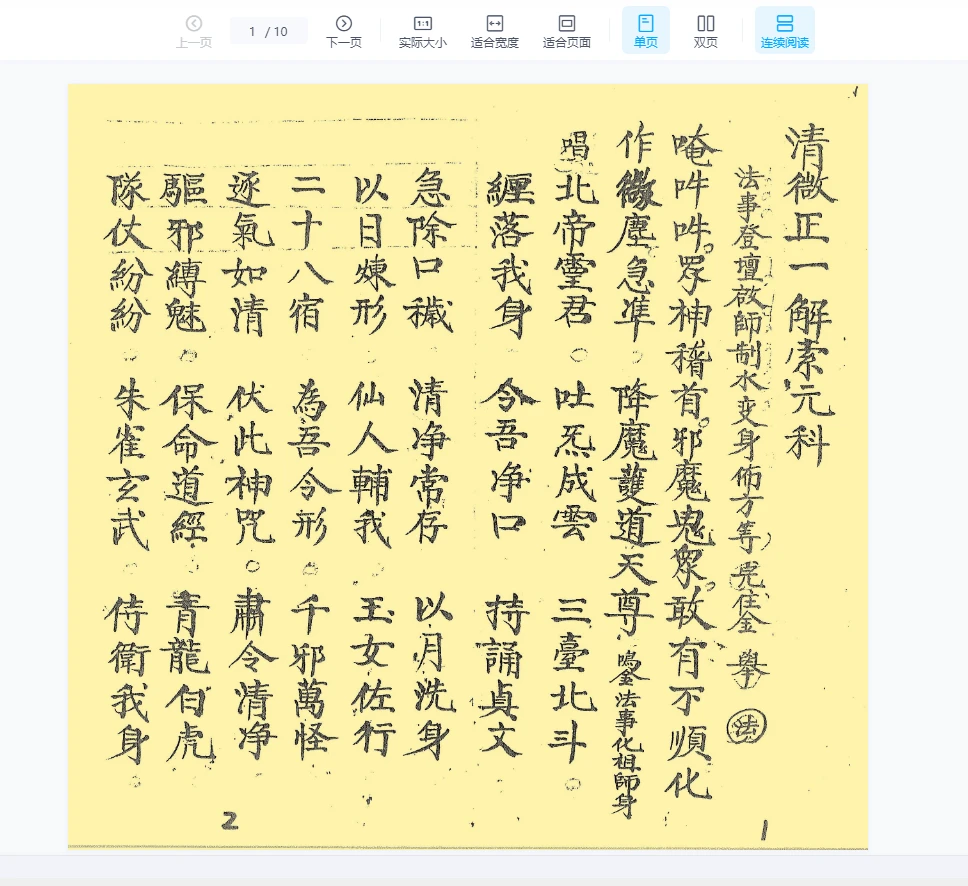 上一页
1 / 10
下一页
1:1
实际大小
适合宽度
适合页面
单页
双页
连续阅读
1
清微正一解索元科
法事登壇啟師制水变身佈方等完住金 舉 法
唵吽吽。眾神稽首。邪魔鬼眾。敢有不順化
作微塵急準 降魔護道天尊 鳴金法事化祖師身
唱 北帝靈君 吐炁成雲 三臺北斗
纏落我身 令吾净口 持誦貞文
急除口穢 清净常存 以月洗身
以日煉形 仙人輔我 玉女佐行
二十八宿 為吾令形 千邪萬怪
逐氣如清 伏此神咒 肅令清净
驅邪縛魅 保命道經 青龍白虎
隊仗紛紛 朱雀玄武 侍衛我身
1
2